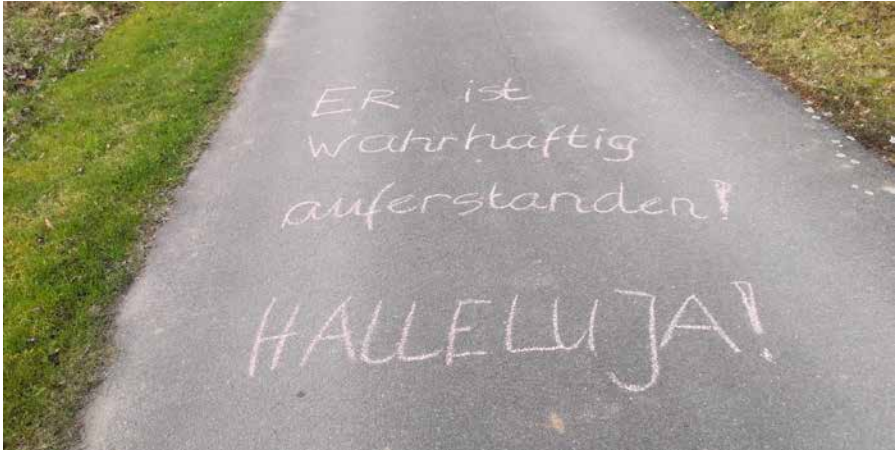 ER ist
wahrhaftig
auferstanden!
HALLELUJA!